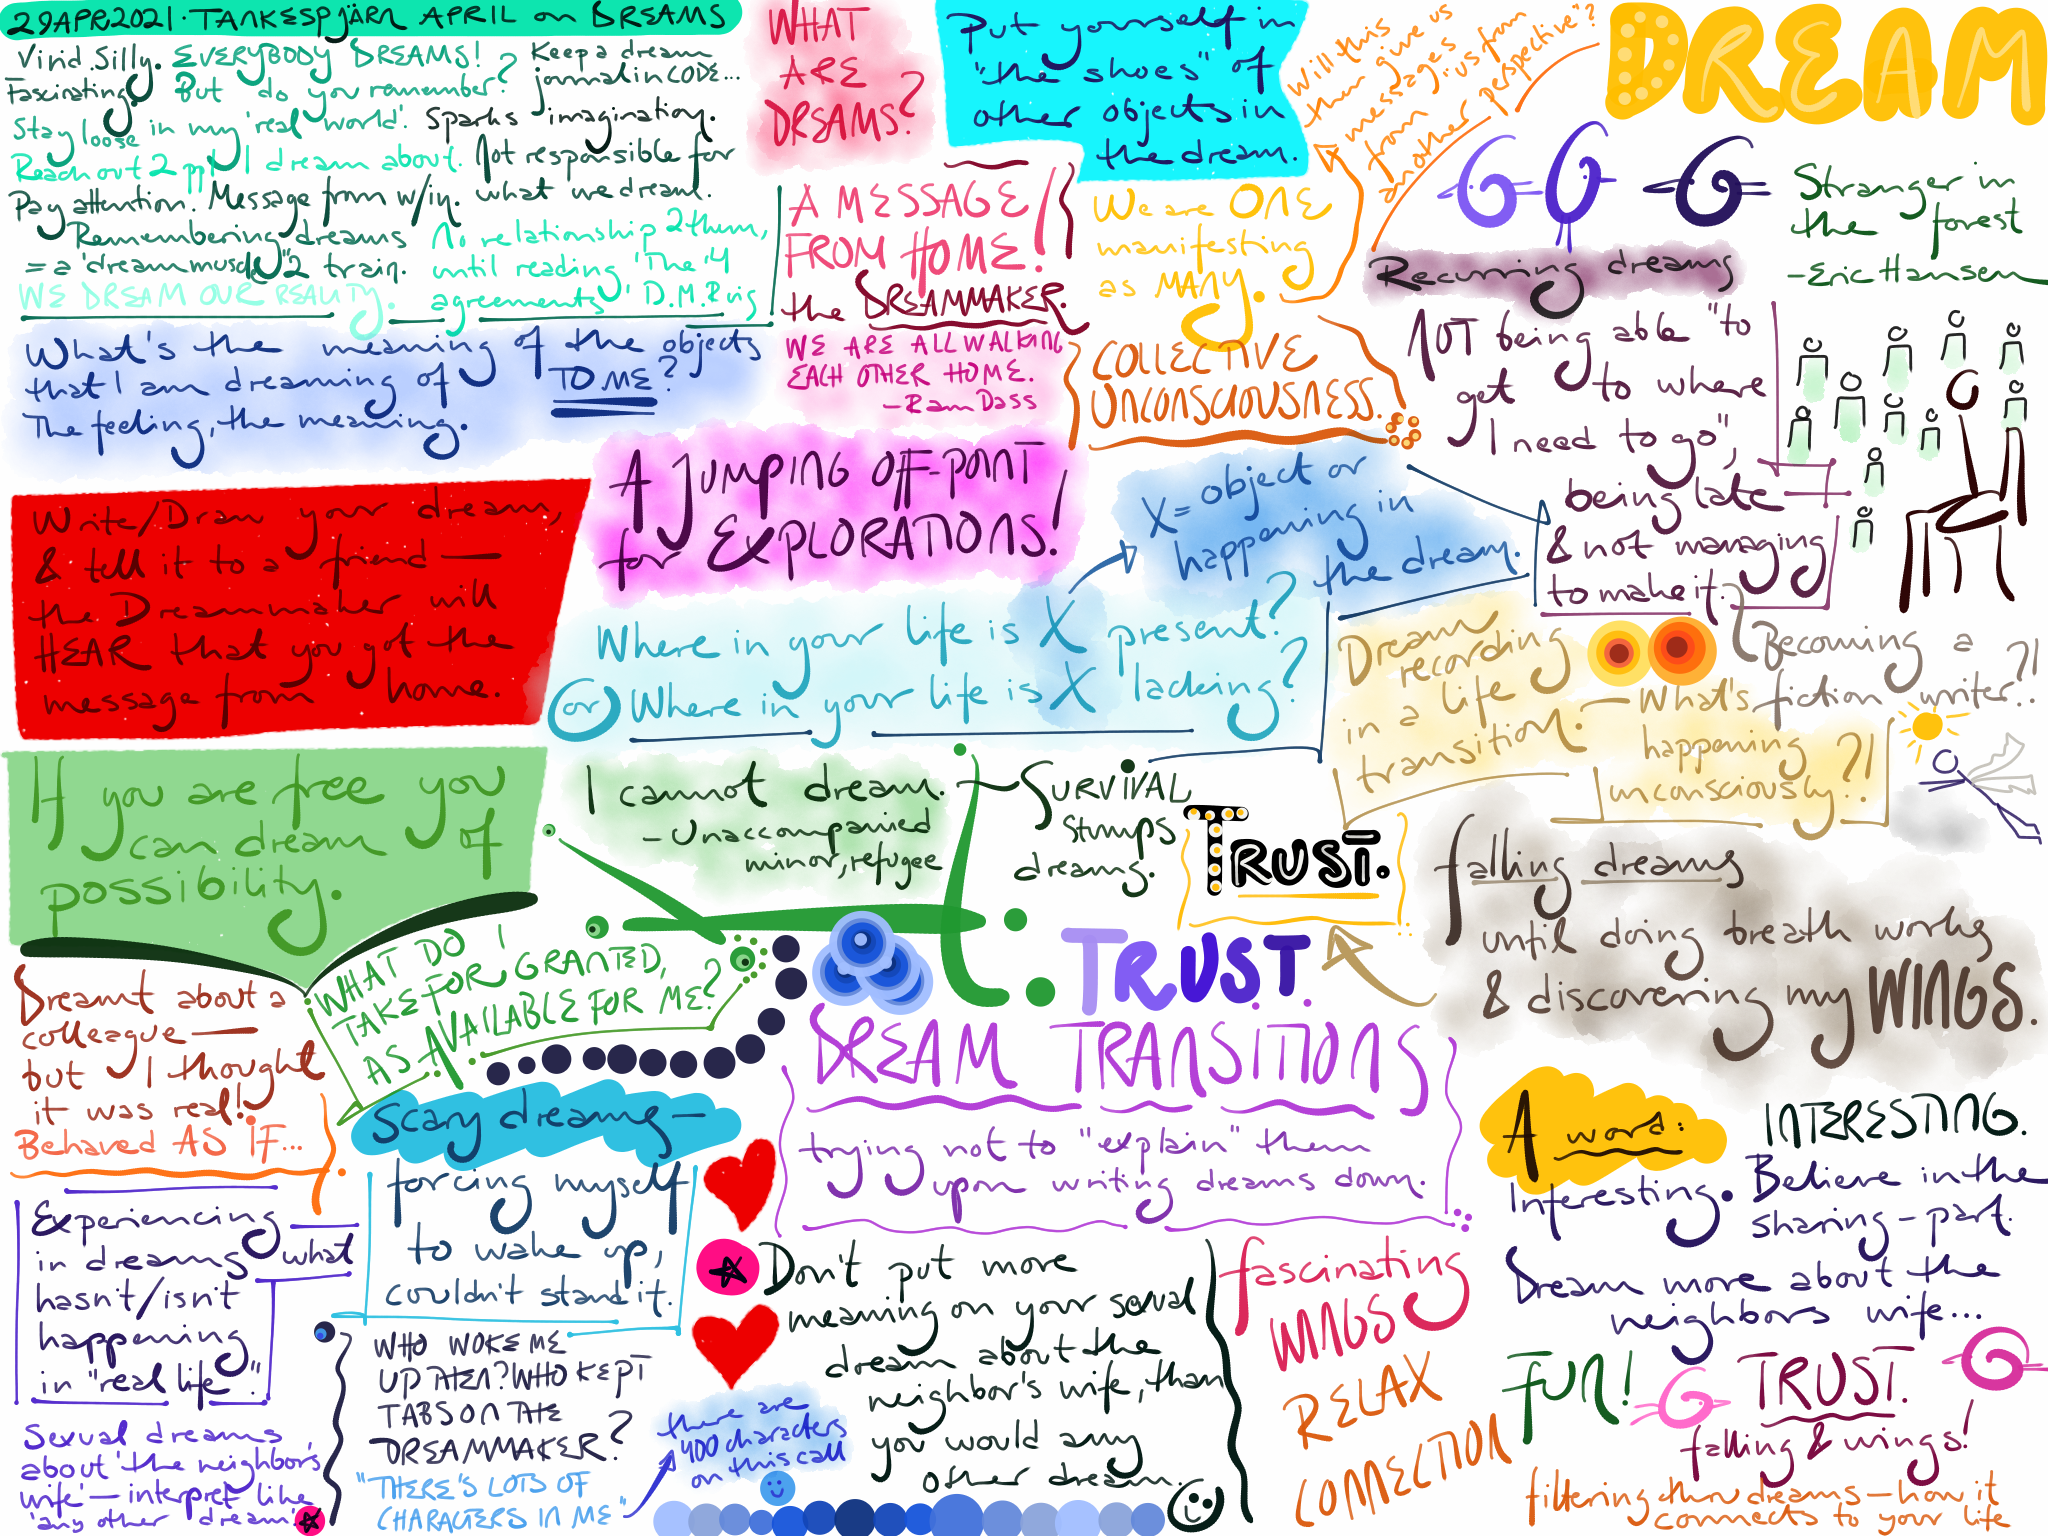 29APR2021 · TANKESPJÄRN APRIL on DREAMS
Vivid. Silly. EVERYBODY DREAMS!
Fascinating. But do you remember?
Keep a dream
journal in CODE...
Stay loose in my 'real world'.
Sparks imagination.
Reach out 2 ppl I dream about.
Not responsible for
what we dream.
Pay attention. Message from w/in.
Remembering dreams
= a 'dreammuscle' 2 train.
WE DREAM OUR REALITY.
No relationship 2 them,
until reading 'The 4
agreements' D.M. Ruiz
WHAT
ARE
DREAMS?
Put yourself in
"the shoes" of
other objects in
the dream.
Will this
then give us
messages
from "us from
another perspective"?
DREAM
A MESSAGE
FROM HOME!
the DREAMMAKER.
We are ONE
manifesting
as MANY.
Stranger in
the forest
- Eric Hansen
Recurring dreams
NOT being able "to
get to where
I need to go",
being late
& not managing
to make it.
What's the meaning of the objects
that I am dreaming of TO ME?
The feeling, the meaning.
WE ARE ALL WALKING
EACH OTHER HOME.
- Ram Dass
COLLECTIVE
UNCONSCIOUSNESS.
A JUMPING OFF-POINT
for EXPLORATIONS!
X = object or
happening in
the dream.
Write/Draw your dream,
& tell it to a friend —
the Dreammaker will
HEAR that you got the
message from home.
Where in your life is X present?
or Where in your life is X lacking?
Dream
recording
in a life
transition.
— What's
happening
unconsciously?!
Becoming a
fiction writer..?!
If you are free you
can dream of
possibility.
I cannot dream.
- Unaccompanied
minor, refugee
SURVIVAL
stumps
dreams.
TRUST.
falling dreams
until doing breath works
& discovering my WINGS.
WHAT DO I
TAKE FOR GRANTED,
AS AVAILABLE FOR ME?
TRUST.
Dreamt about a
colleague —
but I thought
it was real!
Behaved AS IF...
DREAM TRANSITIONS
trying not to "explain" them
upon writing dreams down.
Scary dreams —
forcing myself
to wake up,
couldn't stand it.
A word:
Interesting.
INTERESTING.
Believe in the
sharing - part.
Dream more about the
neighbors wife...
Experiencing
in dreams what
hasn't/isn't
happening
in "real life".
WHO WOKE ME
UP THEN? WHO KEPT
TABS ON THE
DREAMMAKER?
"THERE'S LOTS OF
CHARACTERS IN ME"
there are
400 characters
on this call
Don't put more
meaning on your sexual
dream about the
neighbor's wife, than
you would any
other dream.
fascinating
WINGS
RELAX
CONNECTION
FUN!
TRUST.
falling & wings!
filtering thru dreams — how it
connects to your life
Sexual dreams
about 'the neighbors
wife' — interpret like
'any other dream'